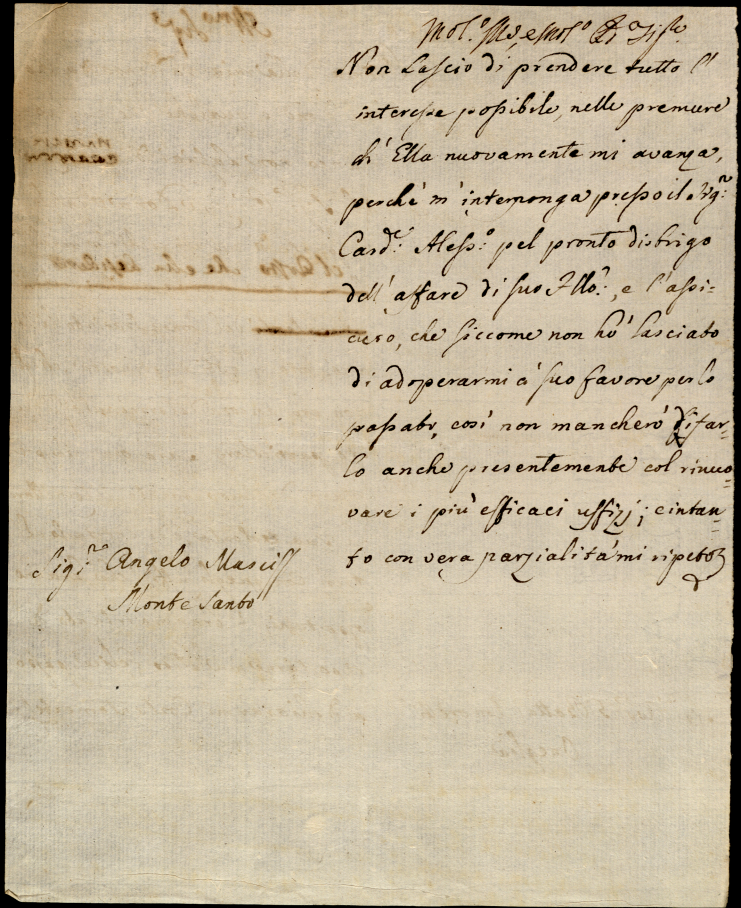 Mol.o Ill.e, e Mol.o
Non Lascio di prendere tutto l'
interesse possibile, nelle premure
ch' Ella nuovamente mi avanza,
perché m'interponga presso il Sig.r
Card.e Aless.o pel pronto disbrigo
dell' affare di suo Fllo:, e l'assi-
curo, che siccome non hò lasciato
di adoperarmi à suo favore per lo
passato, così non mancherò di far-
lo anche presentemente col rinuo-
vare i più efficaci uffizj; e intan-
to con vera parzialità mi ripeto
Sig.r Angelo Mascij
Monte Santo